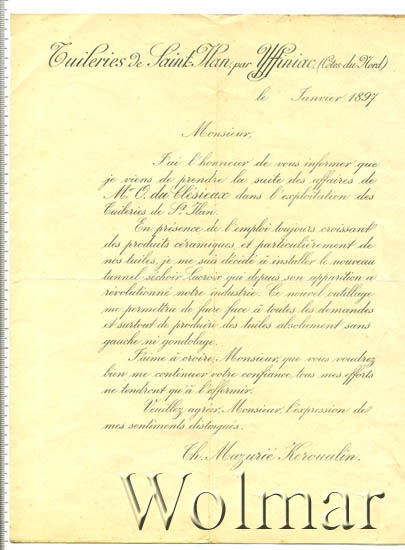 Tuileries de Saint-Ilan, par Yffiniac, (Côtes-du-Nord)
le Janvier 1897
Monsieur,
J'ai l'honneur de vous informer que
je viens de prendre la suite des affaires de
Mr O. du Clésieux dans l'exploitation des
Tuileries de St Ilan.
En présence de l'emploi toujours croissant
des produits céramiques, et particulièrement de
nos tuiles, je me suis décidé à installer le nouveau
tunnel-séchoir Lacroix qui depuis son apparition a
révolutionné notre industrie. Ce nouvel outillage
me permettra de faire face à toutes les demandes
et surtout de produire des tuiles absolument sans
gauche ni gondolage.
J'aime à croire, Monsieur, que vous voudrez
bien me continuer votre confiance, tous mes efforts
ne tendront qu'à l'affermir.
Veuillez agréer, Monsieur, l'expression de
mes sentiments distingués.
Th. Mazurié Keroualin.
Wolmar